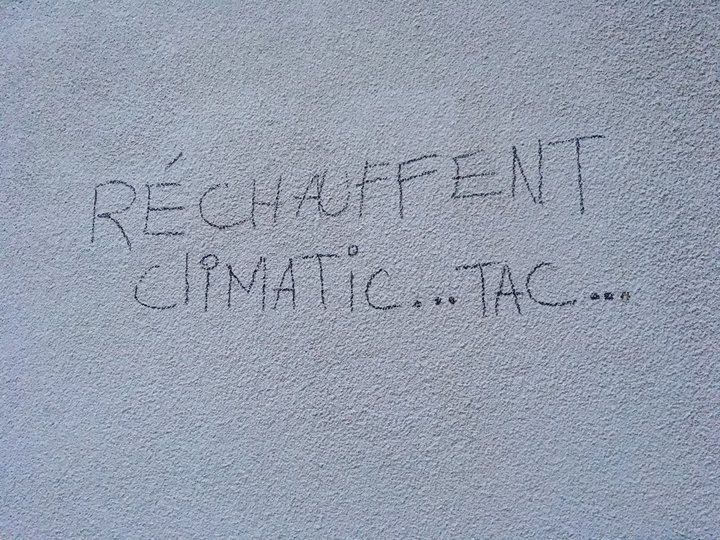 RÉCHAUFFENT
CliMATiC...TAC...